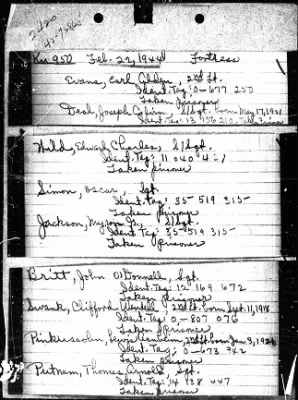 Ku 950 Feb. 22, 1944 Fortress
Evans, Carl , 2nd Lt.
Ident. Tag: O-677 250
Taken Prisoner
Deal, Joseph , S/Sgt. born May 17, 1921
Ident. Tag: 13
Hild, Edward Charles, S/Sgt.
Ident. Tag: 11 040 4
Taken prisoner
Simon, Oscar, Sgt.
Ident. Tag: 35 519 315
Taken
Jackson, Myron Jr., S/Sgt.
Ident. Tag: 35 519 315
Taken Prisoner
Britt, John O'Donnell, Sgt.
Ident. Tag: 12 169 672
Taken prisoner
Swank, Clifford Wendell 2nd Lt. born Sept. 11, 1918
Ident. Tag: O-807 076
Taken Prisoner
Pinkussohn, 2nd Lt. born Jan 3,
Ident. Tag: O-673 942
Taken prisoner
Putnam, Thomas Arnold, Sgt.
Ident. Tag: 14 138 447
Taken prisoner